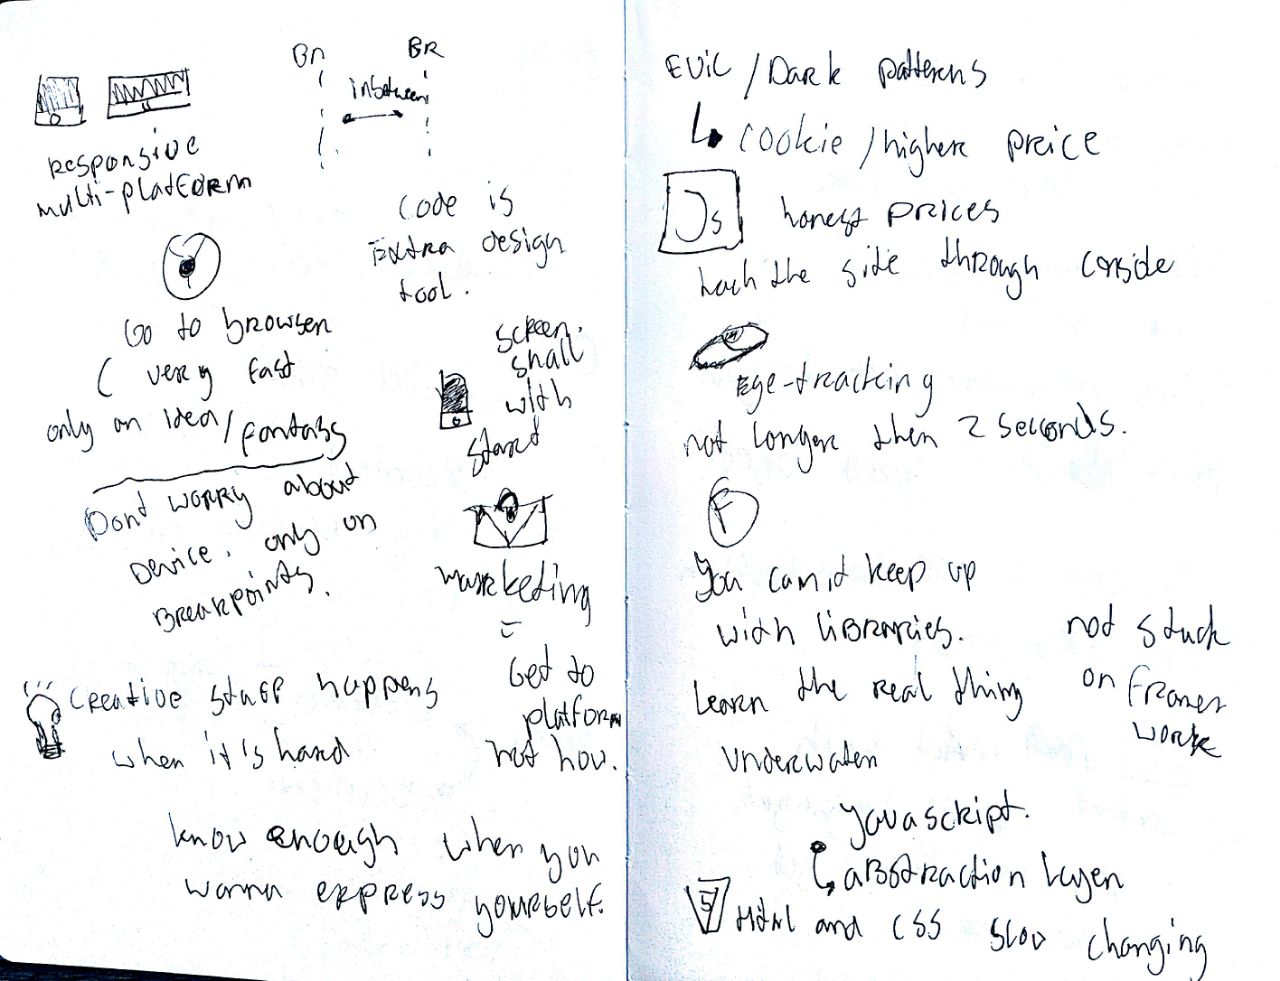 BR BR
inbetween
responsive
multi-platform
code is
Extra design
tool.
Go to browser
( very fast
only an idea/fantasy
Dont worry about
Device. only on
Breakpoints.
screen.
small
with
start
marketing
=
Get to
platform
not how.
creative stuff happens
when it's hard
know enough when you
wanna express yourself.
EVIL / Dark patterns
cookie / higher price
Js honest prices
hack the site through
Eye-tracking
not longer then 2 seconds.
F
You can't keep up
with LIBRARIES.
Learn the real thing
not stuck
on frames
work
Underwater
Javascript.
ABstraction layer
5 Html and CSS slow changing